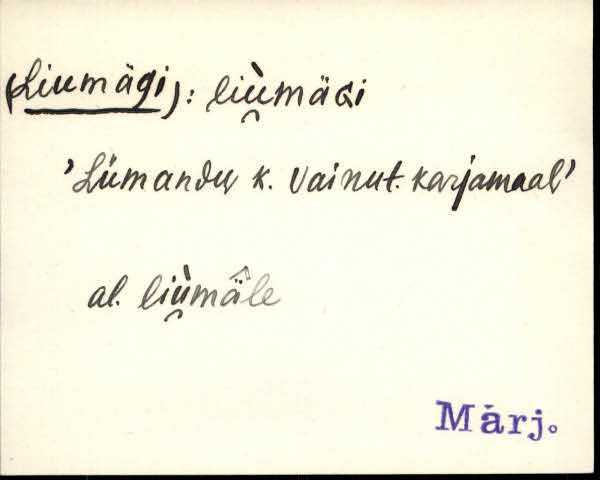 (Liumägi): liù̯mäGi
'Lümandu k. Vainut. karjamaal'
al. liù̯mä̂le
Märj.